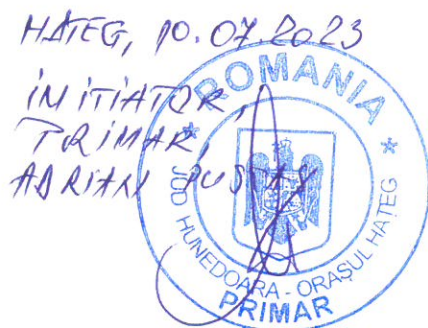 HAȚEG, 10.07.2023
INITIATOR,
PRIMAR,
ADRIAN PUSTAY
* ROMANIA *
JUD HUNEDOARA - ORAȘUL HAȚEG
PRIMAR